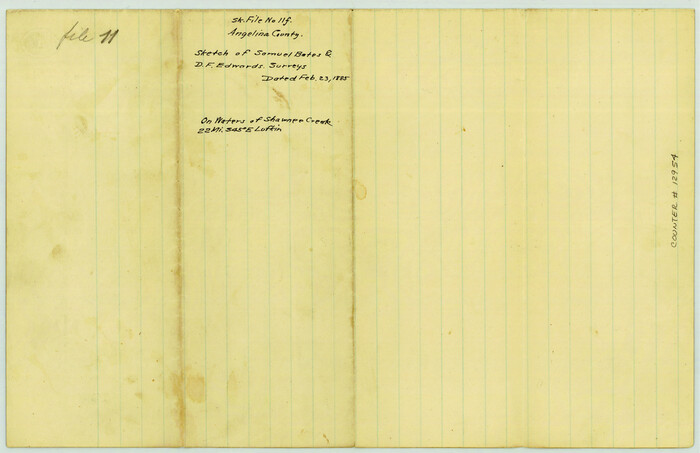 file 11
Sk. File No 11f.
Angelina County.
Sketch of Samuel Bates &
D.F. Edwards. Surveys
Dated Feb. 23, 1885
On Waters of Shawnee Creek
22 Mi. S45°E Lufkin
COUNTER # 12954